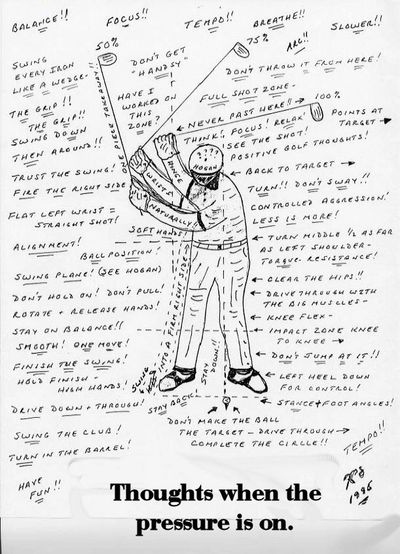 BALANCE!! FOCUS!! TEMPO!! BREATHE!! SLOWER!!
50% 75% ARG!!
SWING
EVERY IRON
LIKE A WEDGE-
DON'T GET
"HANDSY"
DON'T THROW IT FROM HERE!
THE GRIP!!
THE GRIP!!
ONE PIECE TAKEAWAY!!
HAVE I
WORKED ON
THIS
ZONE?
FULL SHOT ZONE-
NEVER PAST HERE!! → 100%
POINTS AT
TARGET →
SWING DOWN
THEN AROUND!!
THINK!, FOCUS! RELAX!
SEE THE SHOT!
POSITIVE GOLF THOUGHTS!
TRUST THE SWING!
FIRE THE RIGHT SIDE
HINGE
WRISTS
NATURALLY!
????
HOGAN
BACK TO TARGET →
TURN!! DON'T SWAY!!
CONTROLLED AGGRESSION!
LESS IS MORE!
FLAT LEFT WRIST =
STRAIGHT SHOT!
SOFT HANDS!
ALIGNMENT!
BALL POSITION!
TURN MIDDLE ½ AS FAR
AS LEFT SHOULDER-
TORQUE RESISTANCE!
SWING PLANE! (SEE HOGAN)
CLEAR THE HIPS!!
DON'T HOLD ON! DON'T PULL!
ROTATE + RELEASE HANDS!
DRIVE THROUGH WITH
THE BIG MUSCLES-
KNEE FLEX-
STAY ON BALANCE!!
IMPACT ZONE KNEE
TO KNEE →
SMOOTH! ONE MOVE!
FINISH THE SWING!
DON'T JUMP AT IT!!
HOLD FINISH-
HIGH HANDS!
SWING
INTO A FIRM RIGHT SIDE
STAY DOWN!!
LEFT HEEL DOWN
FOR CONTROL!
DRIVE DOWN + THROUGH!
STAY BACK
STANCE + FOOT ANGLES!
SWING THE CLUB!
DON'T MAKE THE BALL
THE TARGET - DRIVE THROUGH →
COMPLETE THE CIRCLE!!
TURN IN THE BARREL!
TEMPO!!
HAVE
FUN!!
1996
Thoughts when the
pressure is on.